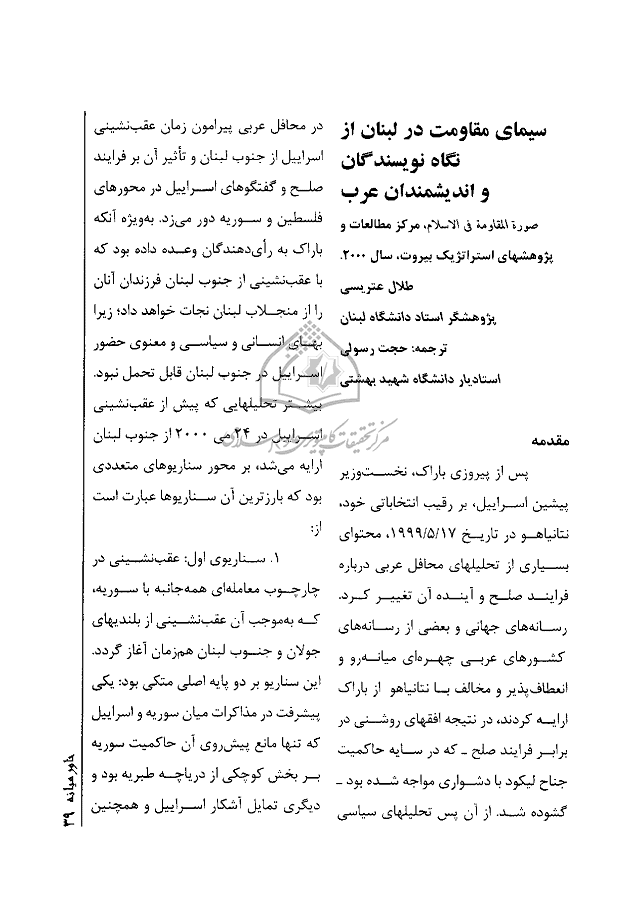 سیمای مقاومت در لبنان از
نگاه نویسندگان
و اندیشمندان عرب
صورة المقاومة فی الاسلام، مرکز مطالعات و
پژوهشهای استراتژیک بیروت، سال ۲۰۰۰.
طلال عتریسی
پژوهشگر استاد دانشگاه لبنان
ترجمه: حجت رسولی
استادیار دانشگاه شهید بهشتی
مقدمه
پس از پیروزی باراک، نخست‌وزیر
پیشین اسراییل، بر رقیب انتخاباتی خود،
نتانیاهو در تاریخ ۱۹۹۹/۵/۱۷، محتوای
بسیاری از تحلیلهای محافل عربی درباره
فرایند صلح و آینده آن تغییر کرد.
رسانه‌های جهانی و بعضی از رسانه‌های
کشورهای عربی چهره‌ای میانه‌رو و
انعطاف‌پذیر و مخالف با نتانیاهو از باراک
ارایه کردند، در نتیجه افقهای روشنی در
برابر فرایند صلح ـ که در سایه حاکمیت
جناح لیکود با دشواری مواجه شده بود ـ
گشوده شد. از آن پس تحلیلهای سیاسی
در محافل عربی پیرامون زمان عقب‌نشینی
اسراییل از جنوب لبنان و تأثیر آن بر فرایند
صلح و گفتگوهای اسراییل در محورهای
فلسطین و سوریه دور می‌زد. به‌ویژه آنکه
باراک به رأی‌دهندگان وعده داده بود که
با عقب‌نشینی از جنوب لبنان فرزندان آنان
را از منجلاب لبنان نجات خواهد داد؛ زیرا
بهای انسانی و سیاسی و معنوی حضور
اسراییل در جنوب لبنان قابل تحمل نبود.
بیشتر تحلیلهایی که پیش از عقب‌نشینی
اسراییل در ۲۴ می ۲۰۰۰ از جنوب لبنان
ارایه می‌شد، بر محور سناریوهای متعددی
بود که بارزترین آن سناریوها عبارت است
از:
۱. سناریوی اول: عقب‌نشینی در
چارچوب معامله‌ای همه‌جانبه با سوریه،
که به‌موجب آن عقب‌نشینی از بلندیهای
جولان و جنوب لبنان هم‌زمان آغاز گردد.
این سناریو بر دو پایه اصلی متکی بود: یکی
پیشرفت در مذاکرات میان سوریه و اسراییل
که تنها مانع پیش‌روی آن حاکمیت سوریه
بر بخش کوچکی از دریاچه طبریه بود و
دیگری تمایل آشکار اسراییل و همچنین
خاورمیانه ۳۹